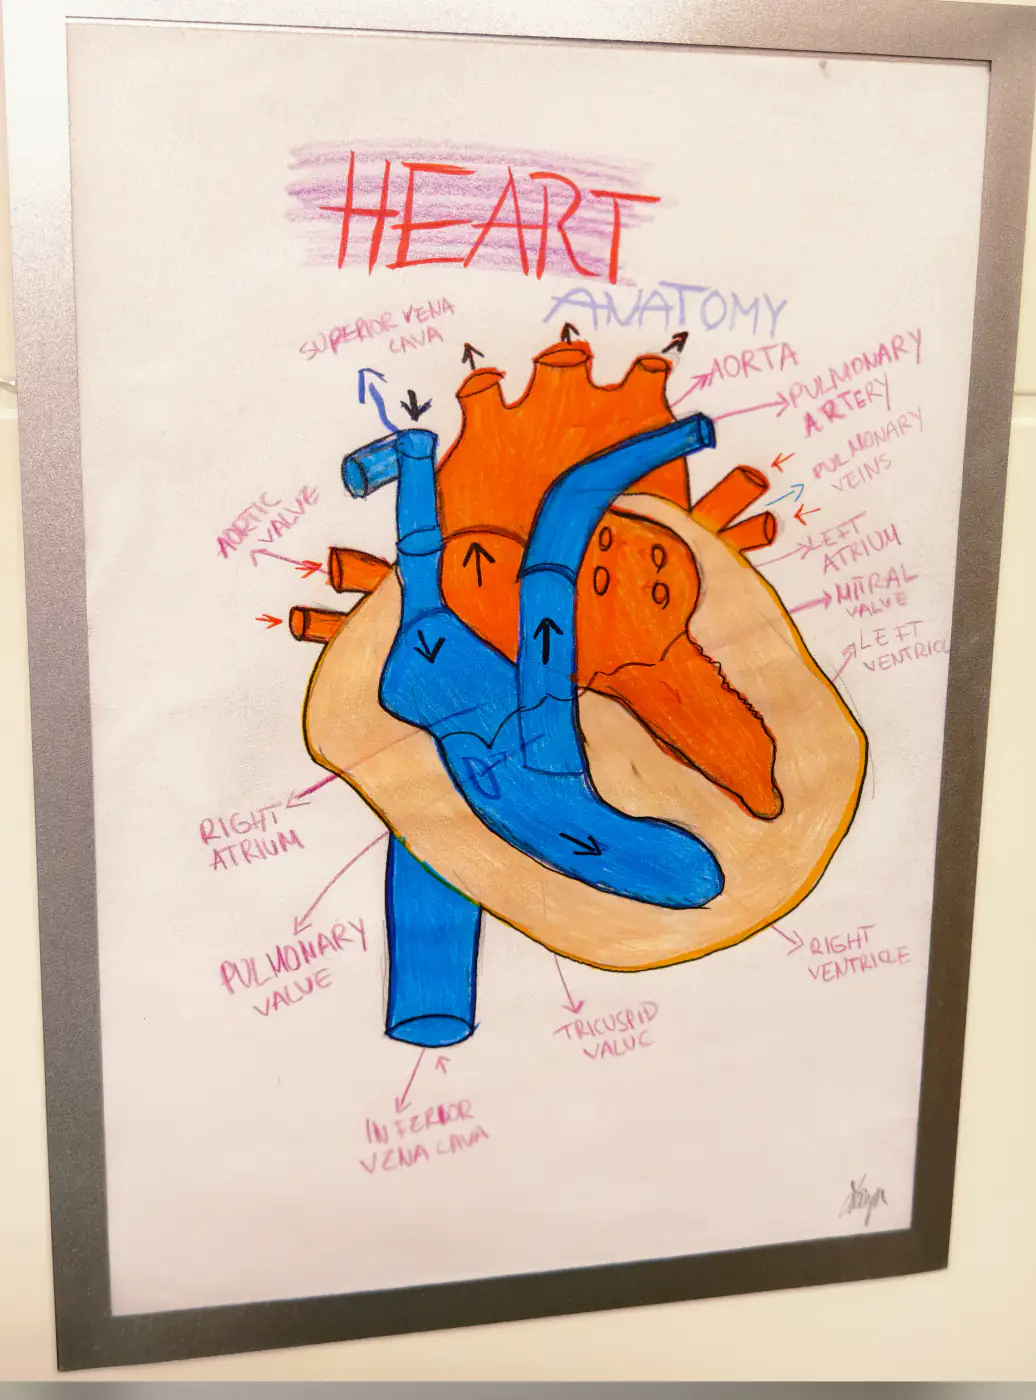 HEART
ANATOMY
SUPERIOR VENA
CAVA
AORTA
PULMONARY
ARTERY
PULMONARY
VEINS
AORTIC
VALVE
LEFT
ATRIUM
MITRAL
VALVE
LEFT
VENTRICL
RIGHT
ATRIUM
PULMONARY
VALVE
RIGHT
VENTRICLE
TRICUSPID
VALUC
INFERIOR
VENA CAVA